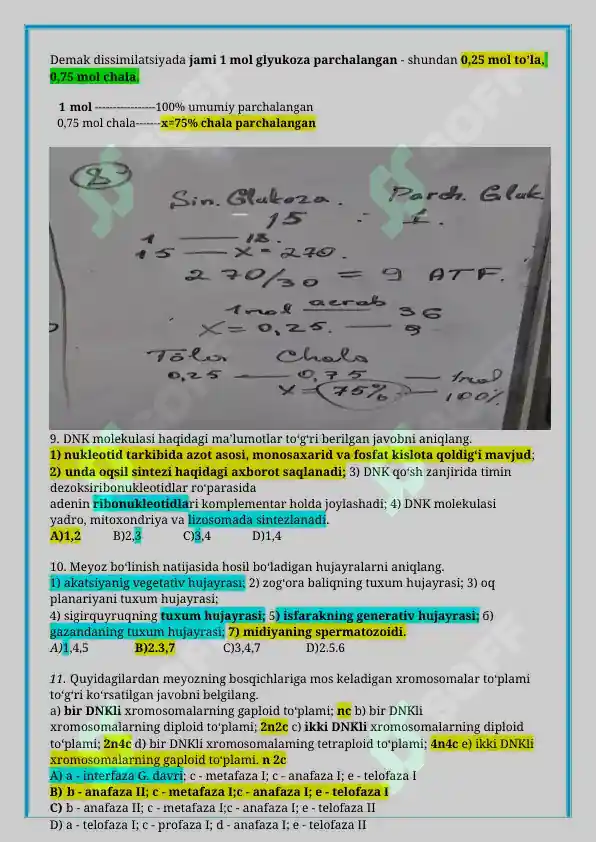 Demak dissimilatsiyada jami 1 mol glyukoza parchalangan - shundan 0,25 mol to'la,
0,75 mol chala.
1 mol -----------------100% umumiy parchalangan
0,75 mol chala-------x=75% chala parchalangan
8
Sin. Glukoza. Parch. Gluk.
15 : 1.
1 — 18.
15 — x = 270.
270/30 = 9 ATF.
1mol aerab 36
x = 0,25. — 9
Tola Chala
0,25 — 0,75 — 1mol
x = 75% — 100%
9. DNK molekulasi haqidagi ma'lumotlar to'g'ri berilgan javobni aniqlang.
1) nukleotid tarkibida azot asosi, monosaxarid va fosfat kislota qoldig'i mavjud;
2) unda oqsil sintezi haqidagi axborot saqlanadi; 3) DNK qo'sh zanjirida timin
dezoksiribonukleotidlar ro'parasida
adenin ribonukleotidlari komplementar holda joylashadi; 4) DNK molekulasi
yadro, mitoxondriya va lizosomada sintezlanadi.
A)1,2 B)2,3 C)3,4 D)1,4
10. Meyoz bo'linish natijasida hosil bo'ladigan hujayralarni aniqlang.
1) akatsiyanig vegetativ hujayrasi; 2) zog'ora baliqning tuxum hujayrasi; 3) oq
planariyani tuxum hujayrasi;
4) sigirquyruqning tuxum hujayrasi; 5) isfarakning generativ hujayrasi; 6)
gazandaning tuxum hujayrasi; 7) midiyaning spermatozoidi.
A)1,4,5 B)2.3,7 C)3,4,7 D)2.5.6
11. Quyidagilardan meyozning bosqichlariga mos keladigan xromosomalar to'plami
to'g'ri ko'rsatilgan javobni belgilang.
a) bir DNKli xromosomalarning gaploid to'plami; nc b) bir DNKli
xromosomalarning diploid to'plami; 2n2c c) ikki DNKli xromosomalarning diploid
to'plami; 2n4c d) bir DNKli xromosomalaming tetraploid to'plami; 4n4c e) ikki DNKli
xromosomalarning gaploid to'plami. n 2c
A) a - interfaza G. davri; c - metafaza I; c - anafaza I; e - telofaza I
B) b - anafaza II; c - metafaza I;c - anafaza I; e - telofaza I
C) b - anafaza II; c - metafaza I;c - anafaza I; e - telofaza II
D) a - telofaza I; c - profaza I; d - anafaza I; e - telofaza II